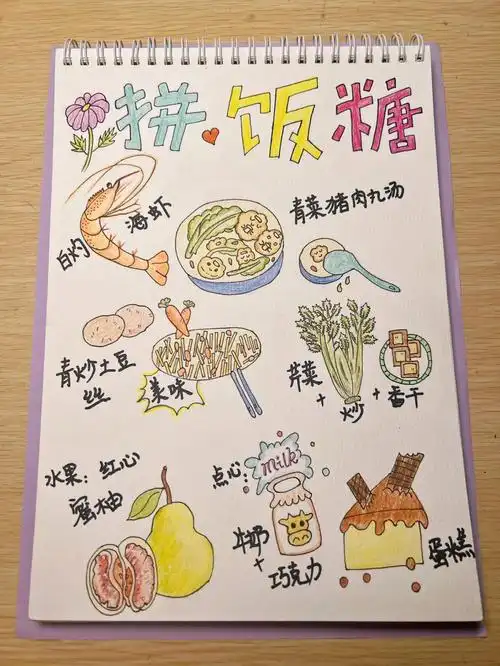 拼·饭糖
白灼海虾
青菜猪肉丸汤
青炒土豆
丝
美味
芹菜
+炒+香干
水果：红心
蜜柚
点心：
milk
牛奶
+
巧克力
蛋糕